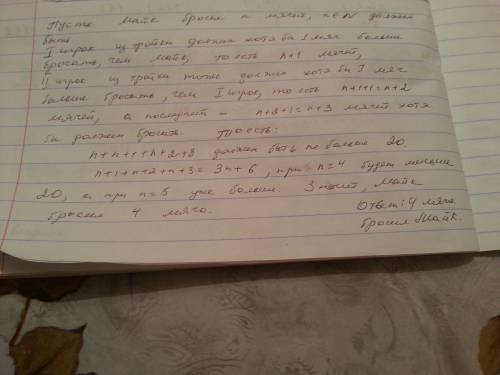 Пусть Майк бросил n мячей, n∈N должен
быть.
I игрок из тройки должен хотя бы 1 мяч больше
бросать, чем Майк, то есть n+1 мячей,
II игрок из тройки тоже должен хотя бы 1 мяч
больше бросать, чем I игрок, то есть n+1+1=n+2
мячей, а последний – n+2+1=n+3 мячей хотя
бы должен бросить. То есть:
n+n+1+n+2+3 должен быть не больше 20.
n+1+n+2+n+3= 3n+6, при n=4 будет меньше
20, а при n=5 уже больше. Значит, Майк
бросил 4 мяча.
Ответ: 4 мяча
бросил Майк.